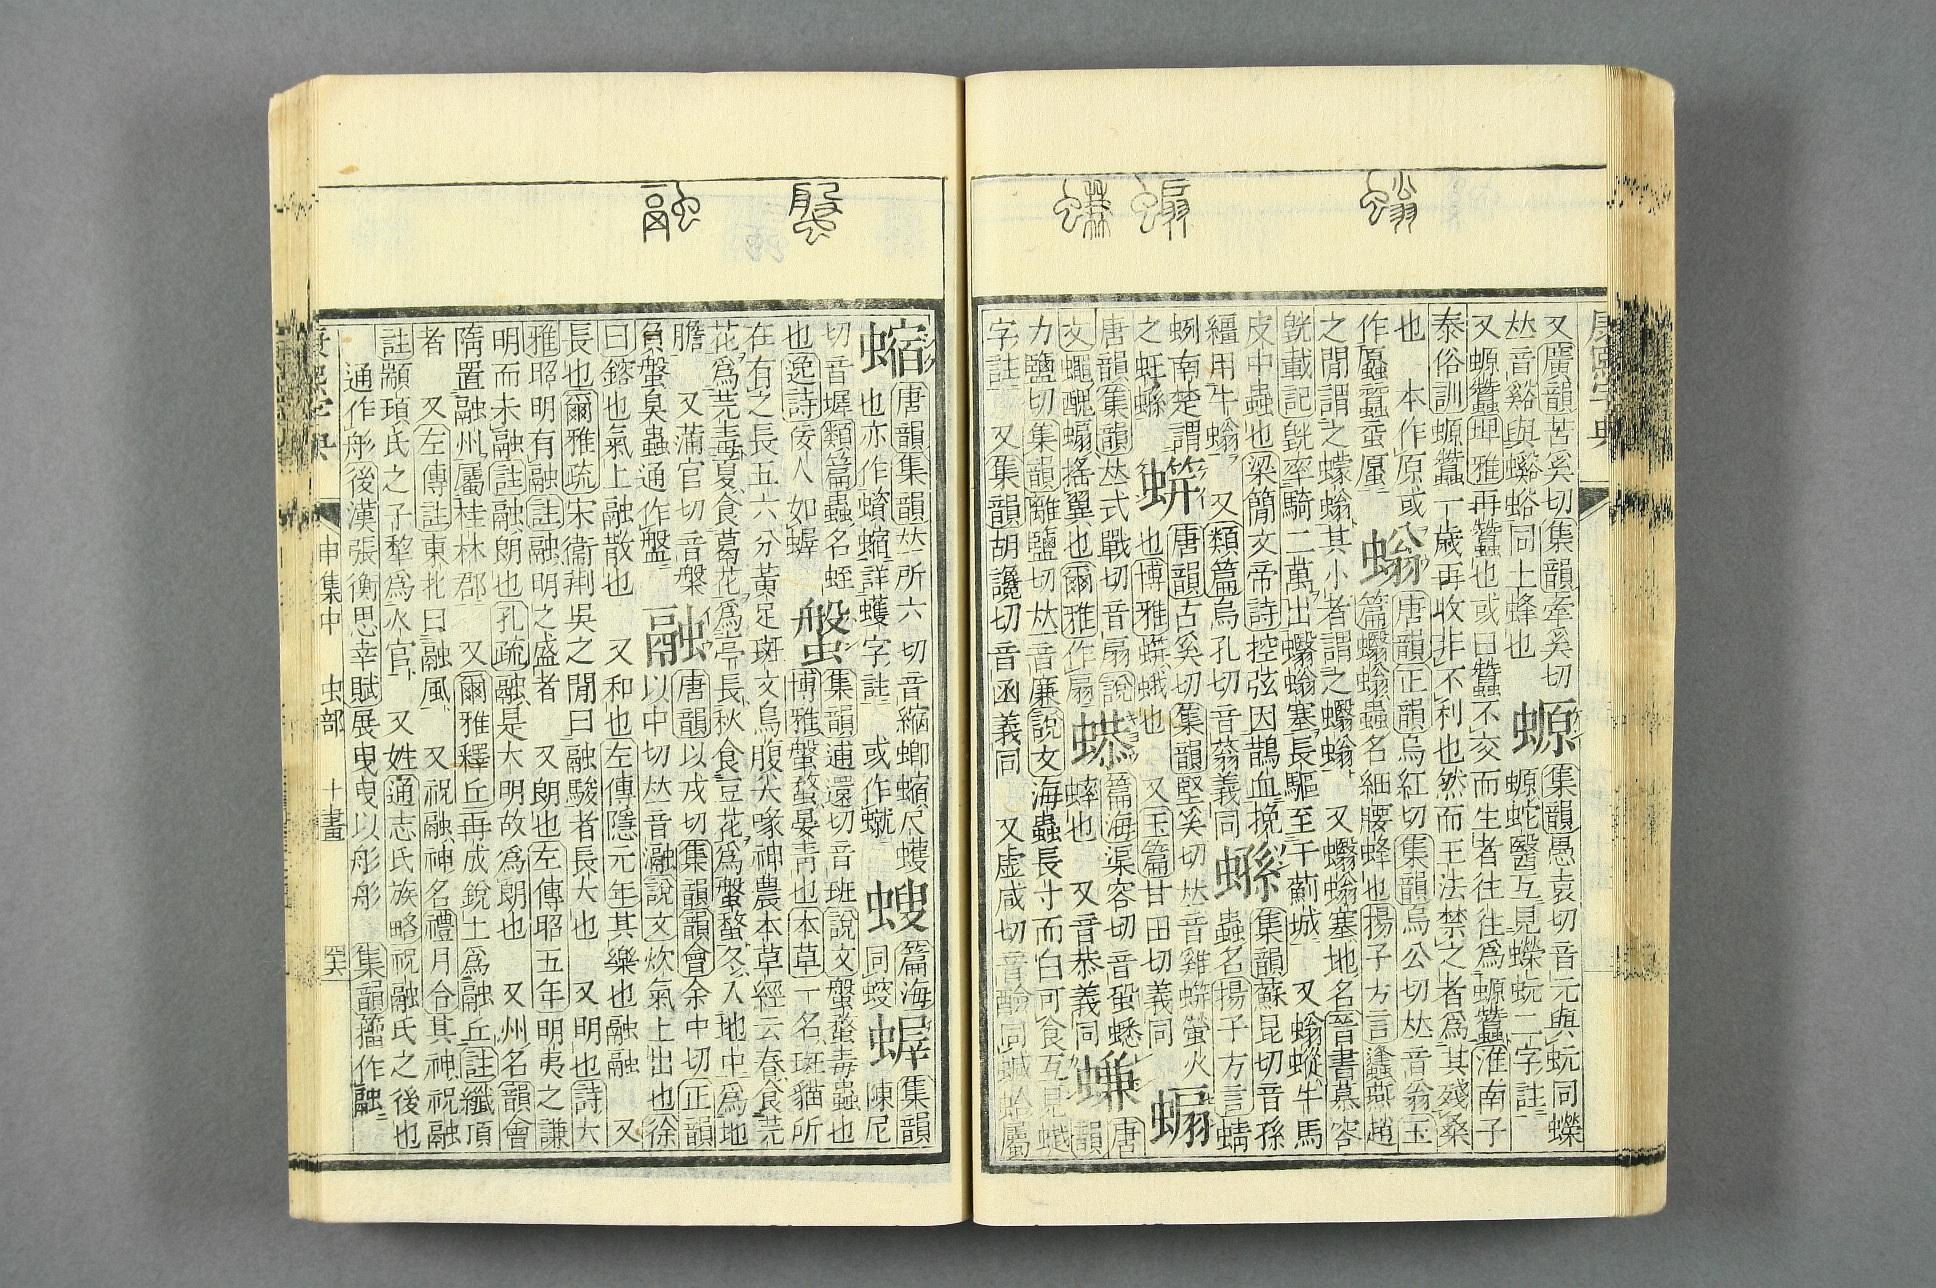 康熙字典
又廣韻苦奚切集韻牽奚切
𠀤音谿與豀谿同土蜂也
螈
集韻愚袁切音元與蚖同蠑
螈蛇醫互見蠑蚖二字註
又螈蠶埤雅再蠶也或曰蠶不交而生者往往爲螈蠶淮南子
泰俗訓螈蠶一歲再收非不利也然而王法禁之者爲其殘桑
也　本作原或
作
螉
唐韻正韻烏紅切集韻烏公切𠀤音翁玉
篇蠮螉蟲名細腰蜂也揚子方言蠭燕趙
之閒謂之蠓螉其小者謂之蠮螉　又蠮螉塞地名晉書慕容
皝載記皝率騎二萬出蠮螉塞長驅至于薊城　又螉䗥牛馬
皮中蟲也梁簡文帝詩控弦因鵲血挽
繮用牛螉　又類篇烏孔切音蓊義同
集韻蘇昆切音孫
蟲名揚子方言蜻
蛚南楚謂
之蚟
唐韻古奚切集韻堅奚切𠀤音雞蛢螢火
也博雅蛢蛾也　又玉篇甘田切義同
唐韻集韻𠀤式戰切音扇說
文蠅醜搖翼也爾雅作扇
篇海渠容切音蛩蟋
蟀也　又音恭義同
螊
唐
韻
力鹽切集韻離鹽切𠀤音廉說文海蟲長寸而白可食互見蛾
字註　又集韻胡讒切音函義同　又虛咸切音同蛤屬
唐韻集韻𠀤所六切音縮蝍尺蠖
也亦作詳蠖字註　或作
螋
篇海
同蛷
集韻
陳尼
切音墀類篇蟲名蛭
也逸詩佞人如
螌
集韻逋還切音班說文螌蝥毒蟲也
博雅螌蝥晏青也本草一名斑貓所
在有之長五六分黃足斑文烏腹尖喙神農本草經云春食芫
花爲芫毒夏食葛花爲亭長秋食豆花爲螌蝥冬入地中爲地
膽　又蒲官切音槃
負螌臭蟲通作盤
融
唐韻以戎切集韻韻會余中切正韻
以中切𠀤音瀜說文炊氣上出也徐
曰鎔也氣上融散也　又和也左傳隱元年其樂也融融　又
長也爾雅疏宋衞荆吳之閒曰融駿者長大也　又明也詩大
雅昭明有融註融明之盛者　又朗也左傳昭五年明夷之謙
明而未融註融朗也孔疏融是大明故爲朗也　又州名韻會
隋置融州屬桂林郡　又爾雅釋丘再成銳上爲融丘註纖頂
者　又左傳註東北曰融風　又祝融神名禮月令其神祝融
註顓頊氏之子犂爲火官　又姓通志氏族略祝融氏之後也
通作肜後漢張衡思幸賦展曳曳以肜肜　集韻籀作融
康熙字典　申集中　虫部　十畫
螉　螊　螌　融